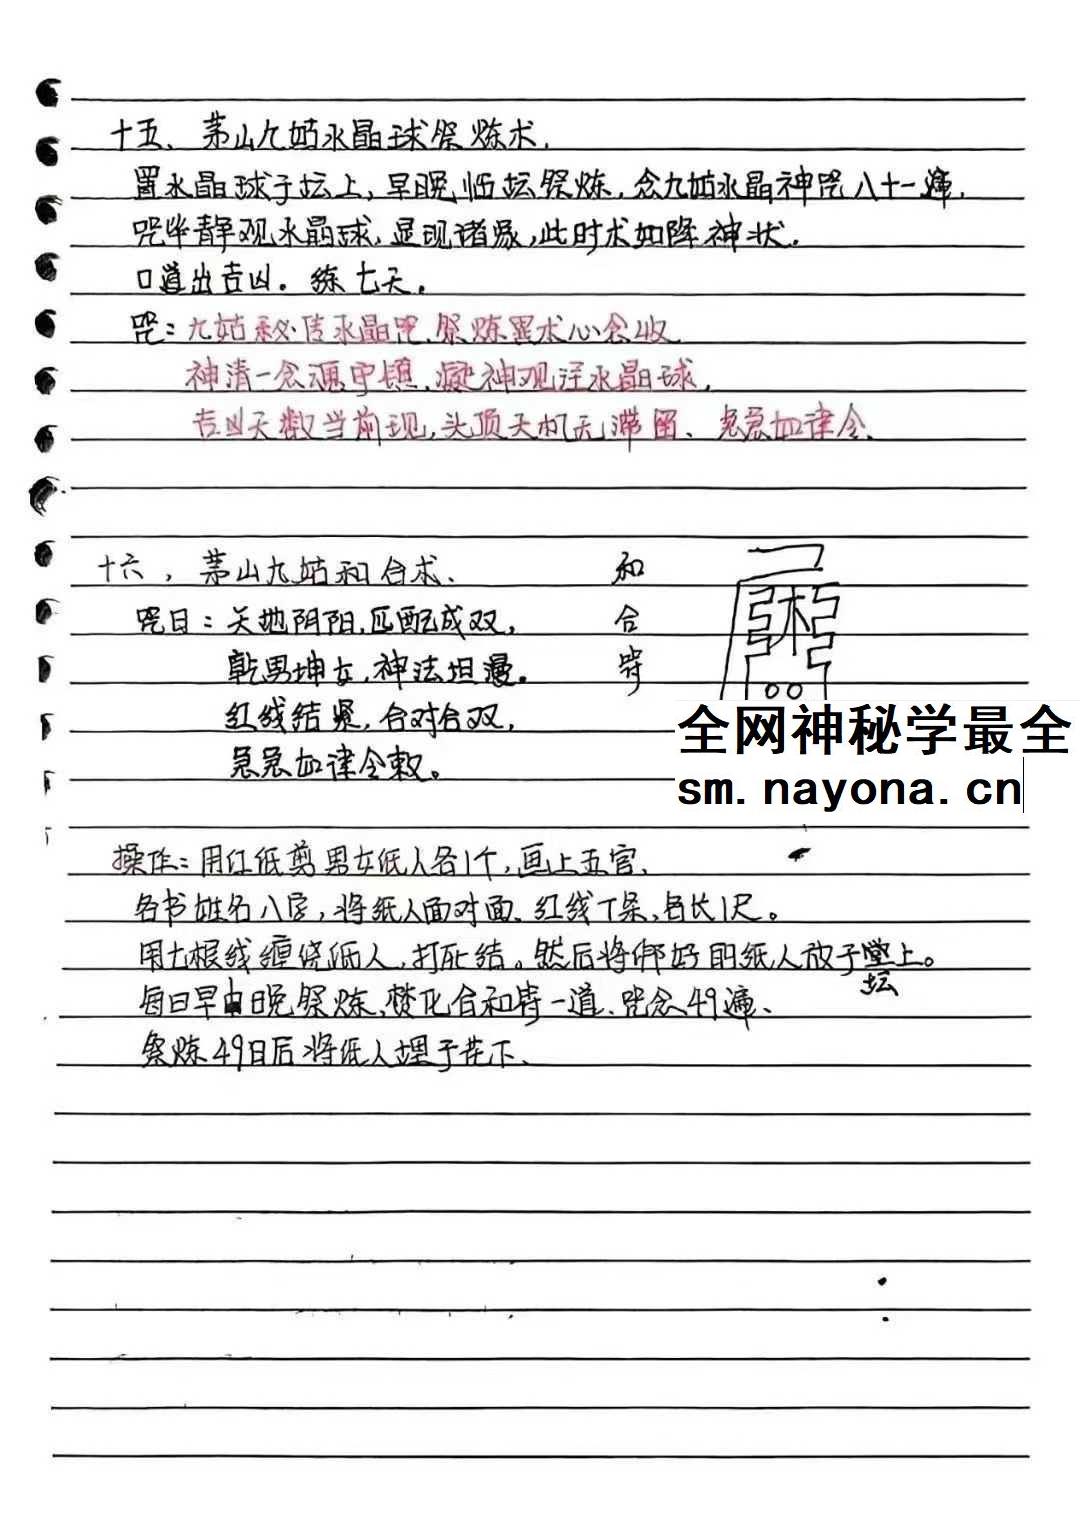 十五、茅山九姑水晶球祭炼术.
置水晶球于坛上,早晚临坛祭炼,念九姑水晶神咒八十一遍.
咒毕静观水晶球,显现诸象,此时术如降神状.
口道出吉凶。练七天。
咒:九姑秘传水晶咒.祭炼置术心念收
神清一念通中镇.凝神观注水晶球.
吉凶天数当前现,头顶天机无滞留、急急如律令.
十六,茅山九姑和合术、
和合符
咒曰:天地阴阳,匹配成双,
乾男坤女,神法坦漫。
红线结紧,合对合双,
急急如律令敕。
全网神秘学最全
sm.nayona.cn
操作:用红纸剪男女纸人各1个,画上五官、
各书姓名八字,将纸人面对面、红线7条、各长1尺。
用七根线缠绕纸人,打死结。然后将绑好的纸人放于堂上。
坛
每日早中晚祭炼、焚化合和符一道、咒念49遍、
祭炼49日后将纸人埋于花下、